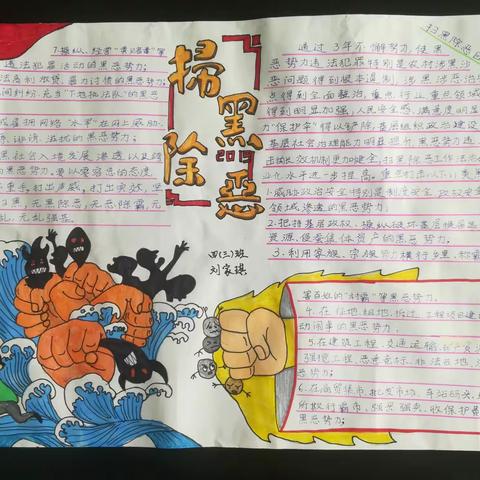 7.操纵、经营"黄赌毒"等
违法犯罪活动的黑恶势力;
法高利放贷、暴力讨债的黑恶势力;
间纠纷,充当"下地执法队"的黑恶
或雇拥网络"水军"在网上威胁、
诽谤、滋扰的黑恶势力;
黑社会入境发展、渗透以及跨
势力。要以零容忍的态度,
重手,打出声威,打出实效,坚
黑,无黑除恶,无恶除霸,无
乱,无乱强基。
掃黑除恶
2019
四(三)班
刘家祺
扫黑除恶
通过3年不懈努力,使黑
恶势力违法犯罪特别是农村涉黑涉
恶问题得到根本遏制,涉黑涉恶治
点得到全面整治,重点行业、重点领域
得到明显加强,人民安全感、满意度明显
力"保护伞"得以铲除,基层组织政治建设
基层社会治理能力明显提升,黑恶势力违
击长效机制更加健全,扫黑除恶工作法
化水平进一步提高。
威胁政治安全特别是制度安全、政权安全
领域渗透的黑恶势力;
2.把持基层政权,操纵破坏基层换届选
资源、侵吞集体资产的黑恶势力;
3.利用家族、宗族势力横行乡里、称霸
害百姓的"村霸"等黑恶势力。
4.在征地、租地、拆迁、工程项目建
动闹事的黑恶势力;
5.在建筑工程、交通运输、矿产资
强揽工程、恶意竞标、非法占地、
恶势力;
6.在商贸集市、批发市场、车站码头、
所欺行霸市、强买强卖、收保护
黑恶势力;